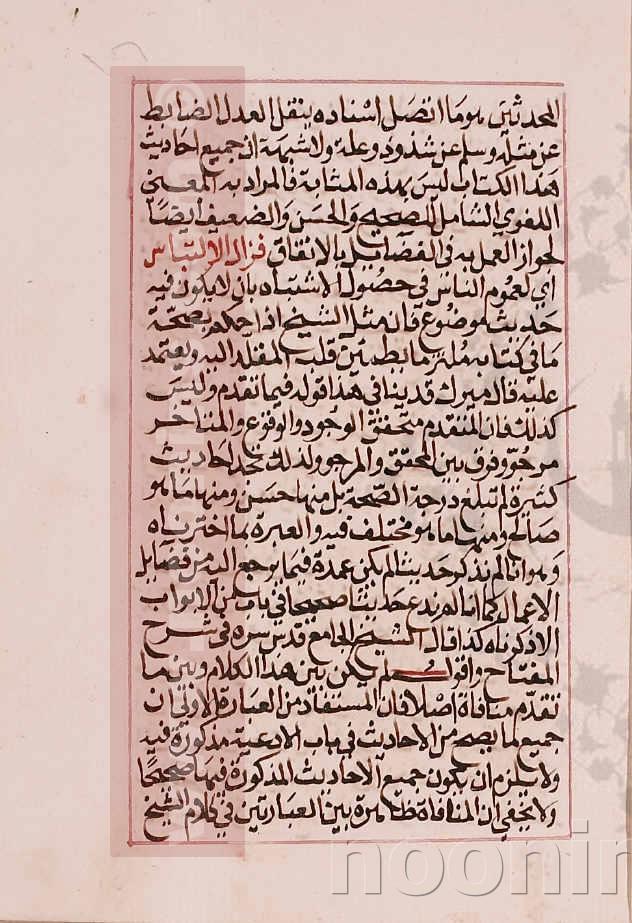 المحدثين هو ما اتصل اسناده بنقل العدل الضابط
عن مثله وسلم عن شذوذ وعلة ولا شبهة ان جميع احاديث
هذا الكتاب ليس بهذه المثابة فالمراد به المعنى
اللغوي الشامل للصحيح والحسن والضعيف ايضا
لجواز العمل به في الفضايل بالاتفاق فزال الالتباس
اي لعموم الناس في حصول الاشتباه بان لا يكون فيه
حديث موضوع فان مثل الشيخ اذا حكم بصحة
ما في كتابه ملتزما يطمئن قلب المقلد اليه ويعتمد
عليه قال ميرك قدينافي هذا قوله فيما تقدم وليس
كذلك فان المتقدم متحقق الوجود والوقوع والمتاخر
مرجو وفرق بين المحقق والمرجو ولذلك تجد احاديث
كثيرة لم تبلغ درجة الصحة بل منها حسن ومنها ما هو
صالح ومنها ما هو مختلف فيه والعبرة بما اخترناه
وهو انا لم نذكر حديثا لم يكن عمدة فيما يرجع اليه من فضايل
الاعمال كما انا لم ندع حديثا صحيحا في باب من الابواب
الا ذكرناه كذا قال الشيخ الجامع قدس سره في شرح
المفتاح واقول لم يكن بين هذا الكلام وبين ما
تقدم منافاة اصلا فان المستفاد من العبارة الاولى ان
جميع ما يصح من الاحاديث في باب الادعية مذكورة فيه
ولا يلزم ان يكون جميع الاحاديث المذكورة فيها صحيحا
ولا يخفى ان المنافاة ظاهرة بين العبارتين في كلام الشيخ
noonin